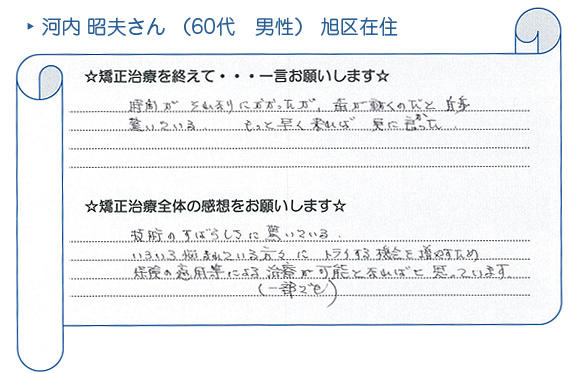 ▸ 河内 昭夫さん （60代　男性） 旭区在住
☆矯正治療を終えて・・・一言お願いします☆
時間が それなりにかかったが、歯が動くのだと
驚いている。 もっと早く来れば 更に良かった。
☆矯正治療全体の感想をお願いします☆
技術のすばらしさに驚いている。
いろいろ悩まれている方々に トライする機会を増やすため
保険の適用等による治療が可能となればと思っています。
(一部でも)